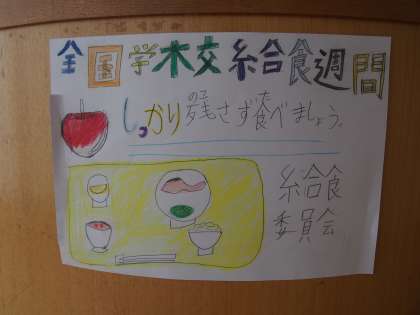 全国学校給食週間
しっかり残さず食べましょう。
給食
委員会